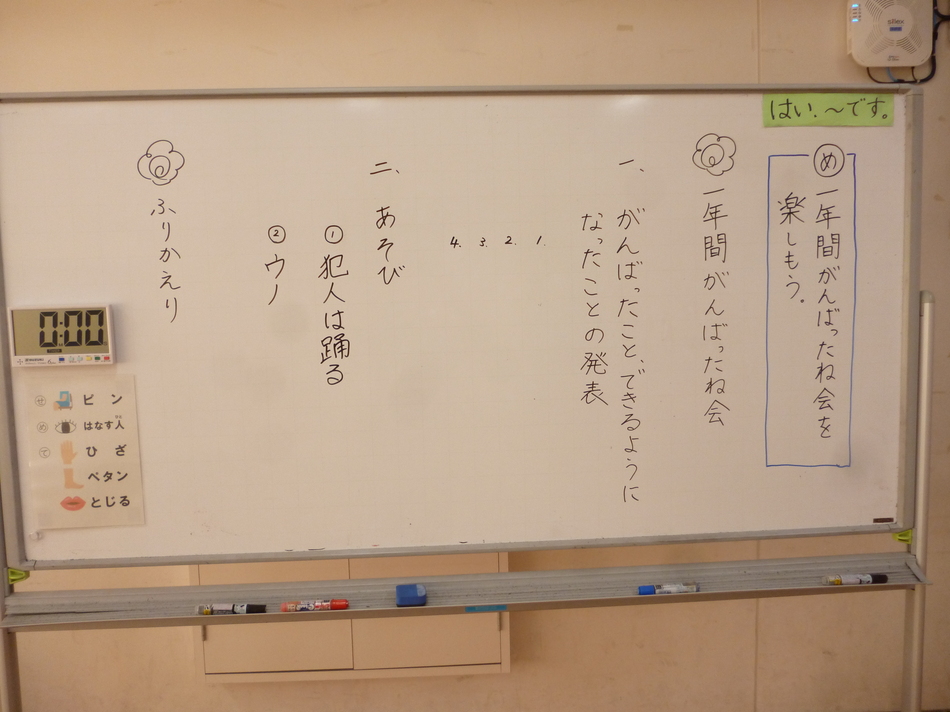 silex
はい、～です。
め
一年間がんばったね会を
楽しもう。
一年間がんばったね会
一、がんばったこと、できるように
なったことの発表
1.
2.
3.
4.
二、あそび
① 犯人は踊る
② ウノ
ふりかえり
0:00
せ ピン
め はなす人
て ひざ
ペタン
とじる